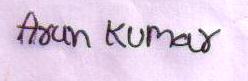 Arun Kumar